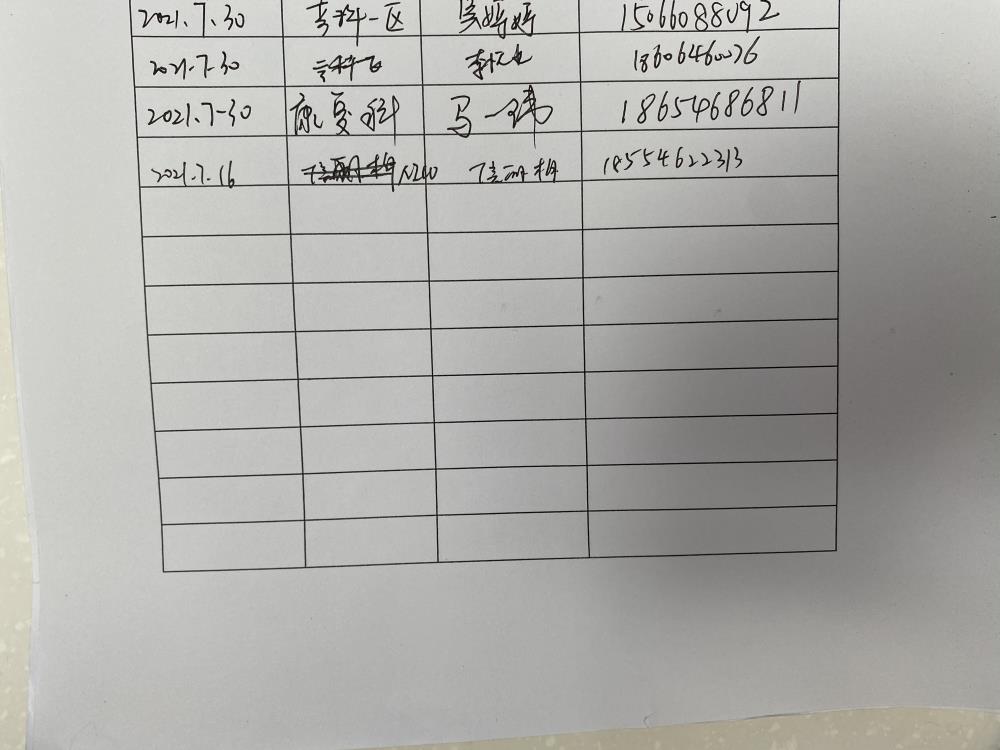 2021.7.30 专科一区 吴婷婷 15066088092
2021.7.30 18606460076
2021.7-30 康复科 马一玮 18654686811
2021.7.16 N240 18554622313